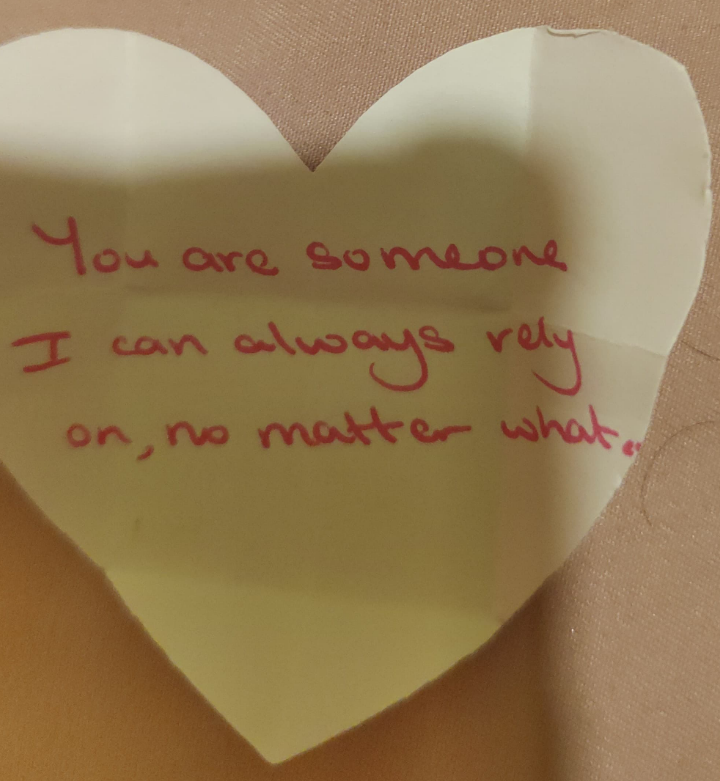 You are someone
I can always rely
on, no matter what..